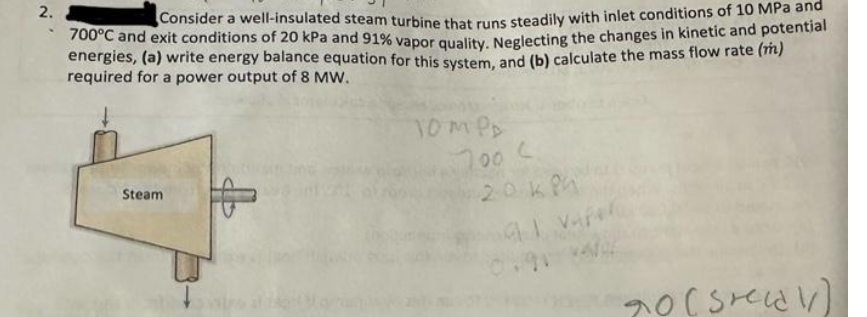 2. Consider a well-insulated steam turbine that runs steadily with inlet conditions of 10 MPa and
700°C and exit conditions of 20 kPa and 91% vapor quality. Neglecting the changes in kinetic and potential
energies, (a) write energy balance equation for this system, and (b) calculate the mass flow rate (ṁ)
required for a power output of 8 MW.
10 MPa
700 C
Steam
20 kPa
91 vapor
0.91
0 (steady)